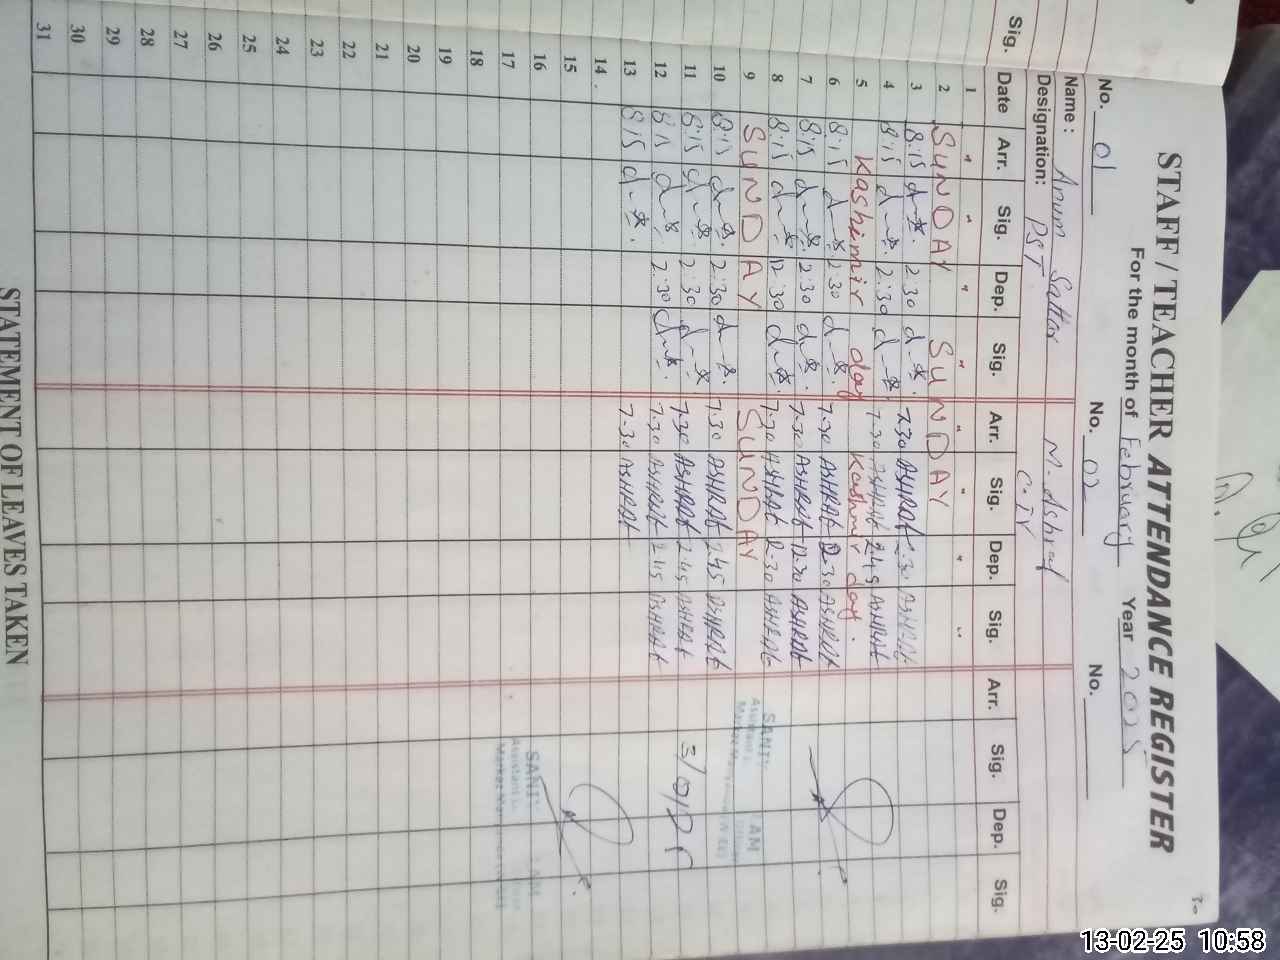 STAFF / TEACHER ATTENDANCE REGISTER
For the month of February Year 2025
No. 01 No. 02 No.
Name: Anum Sattar M. Ashraf
Designation: PST C-IV
Sig. Date Arr. Sig. Dep. Sig. Arr. Sig. Dep. Sig. Arr. Sig. Dep. Sig.
1 " " " " " " " "
2 SUNDAY SUNDAY
3 8:15 2:30 7.30 ASHRAF ASHRAF
4 8:15 2:30 7.30 ASHRAF 2.45 ASHRAF
5 Kashimir day Kashmir day.
6 8:15 2:30 7.30 ASHRAF 2.30 ASHRAF
7 8:15 2:30 7.30 ASHRAF 12.30 ASHRAF
8 8:15 12:30 7.30 ASHRAF 2.30 ASHRAF
9 SUNDAY SUNDAY
10 8:15 2:30 7.30 ASHRAF 2.45 ASHRAF
11 8:15 2:30 7.30 ASHRAF 2.45 ASHRAF
12 8:15 2:30 7.30 ASHRAF 2.45 ASHRAF
13 8:15 7.30 ASHRAF
14
15
16
17
18
19
20
21
22
23
24
25
26
27
28
29
30
31
STATEMENT OF LEAVES TAKEN
13-02-25 10:58